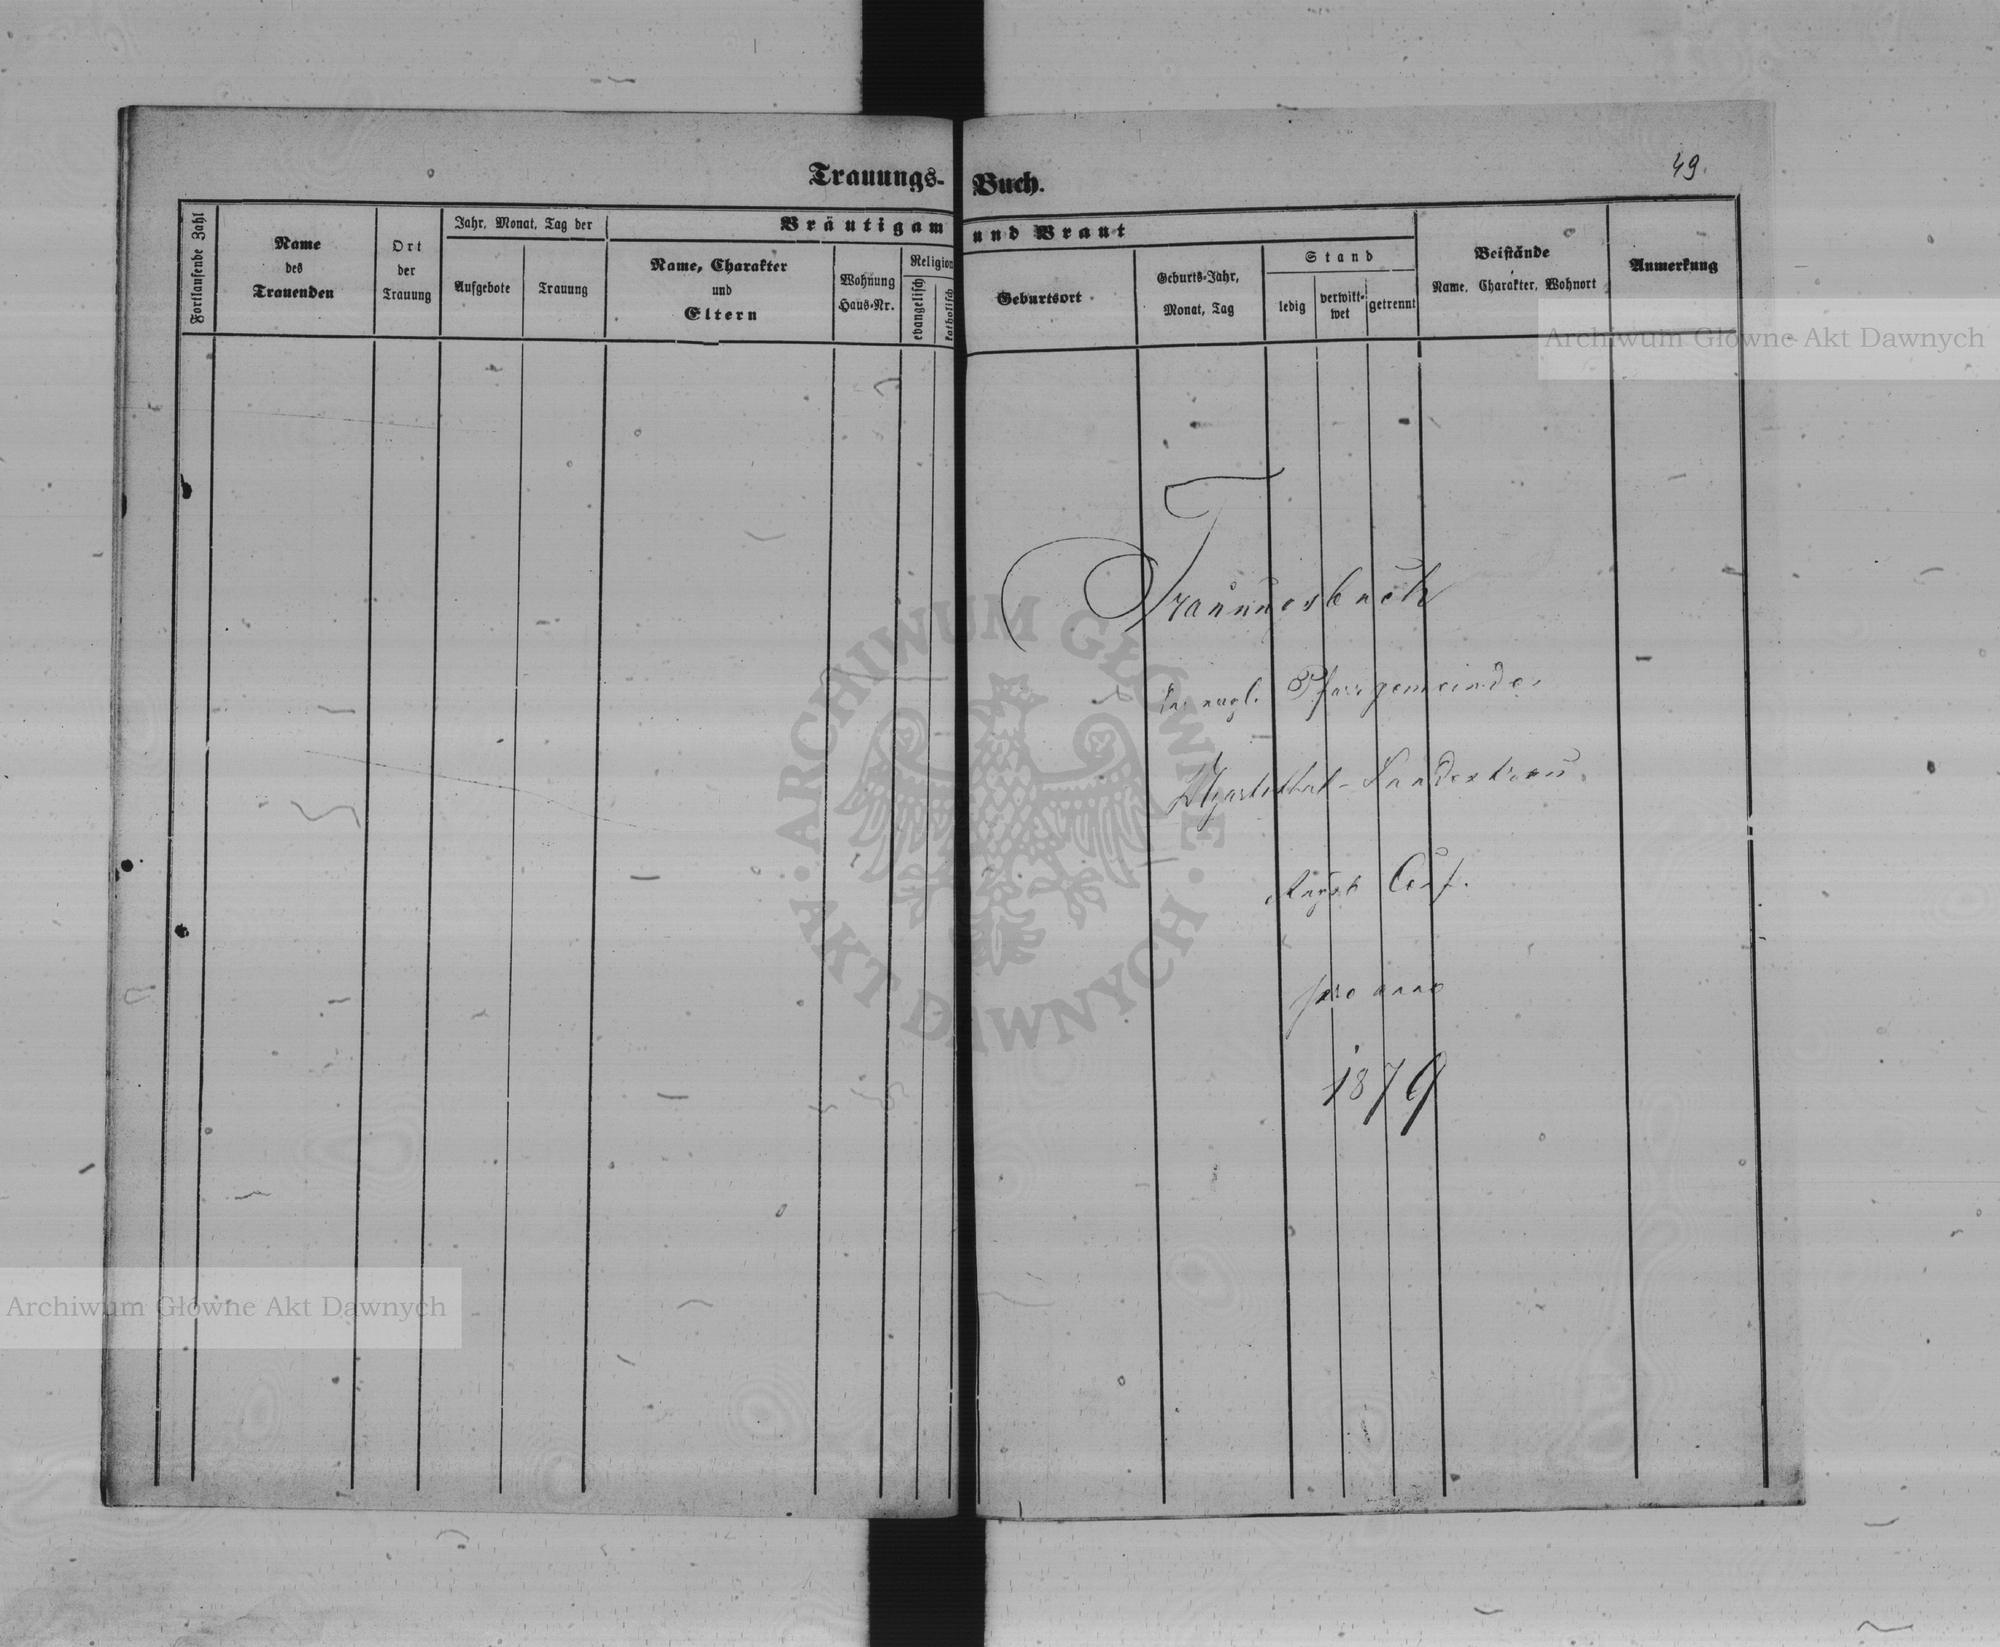 49.
Trauungs-Buch.
Fortlaufende Zahl
Name
des
Trauenden
Ort
der
Trauung
Jahr, Monat, Tag der
Aufgebote
Trauung
Bräutigam und Braut
Name, Charakter
und
Eltern
Wohnung
Haus-Nr.
Religion
evangelisch
katholisch
Geburtsort
Geburts-Jahr,
Monat, Tag
Stand
ledig
verwitt-
wet
getrennt
Beistände
Name, Charakter, Wohnort
Anmerkung
Trauungsbuch
Pfarrgemeinde
Ugartsthal-Landestreu
Augsb. Conf.
pro anno
1879
Archiwum Główne Akt Dawnych
ARCHIWUM GŁÓWNE
AKT DAWNYCH
Archiwum Główne Akt Dawnych